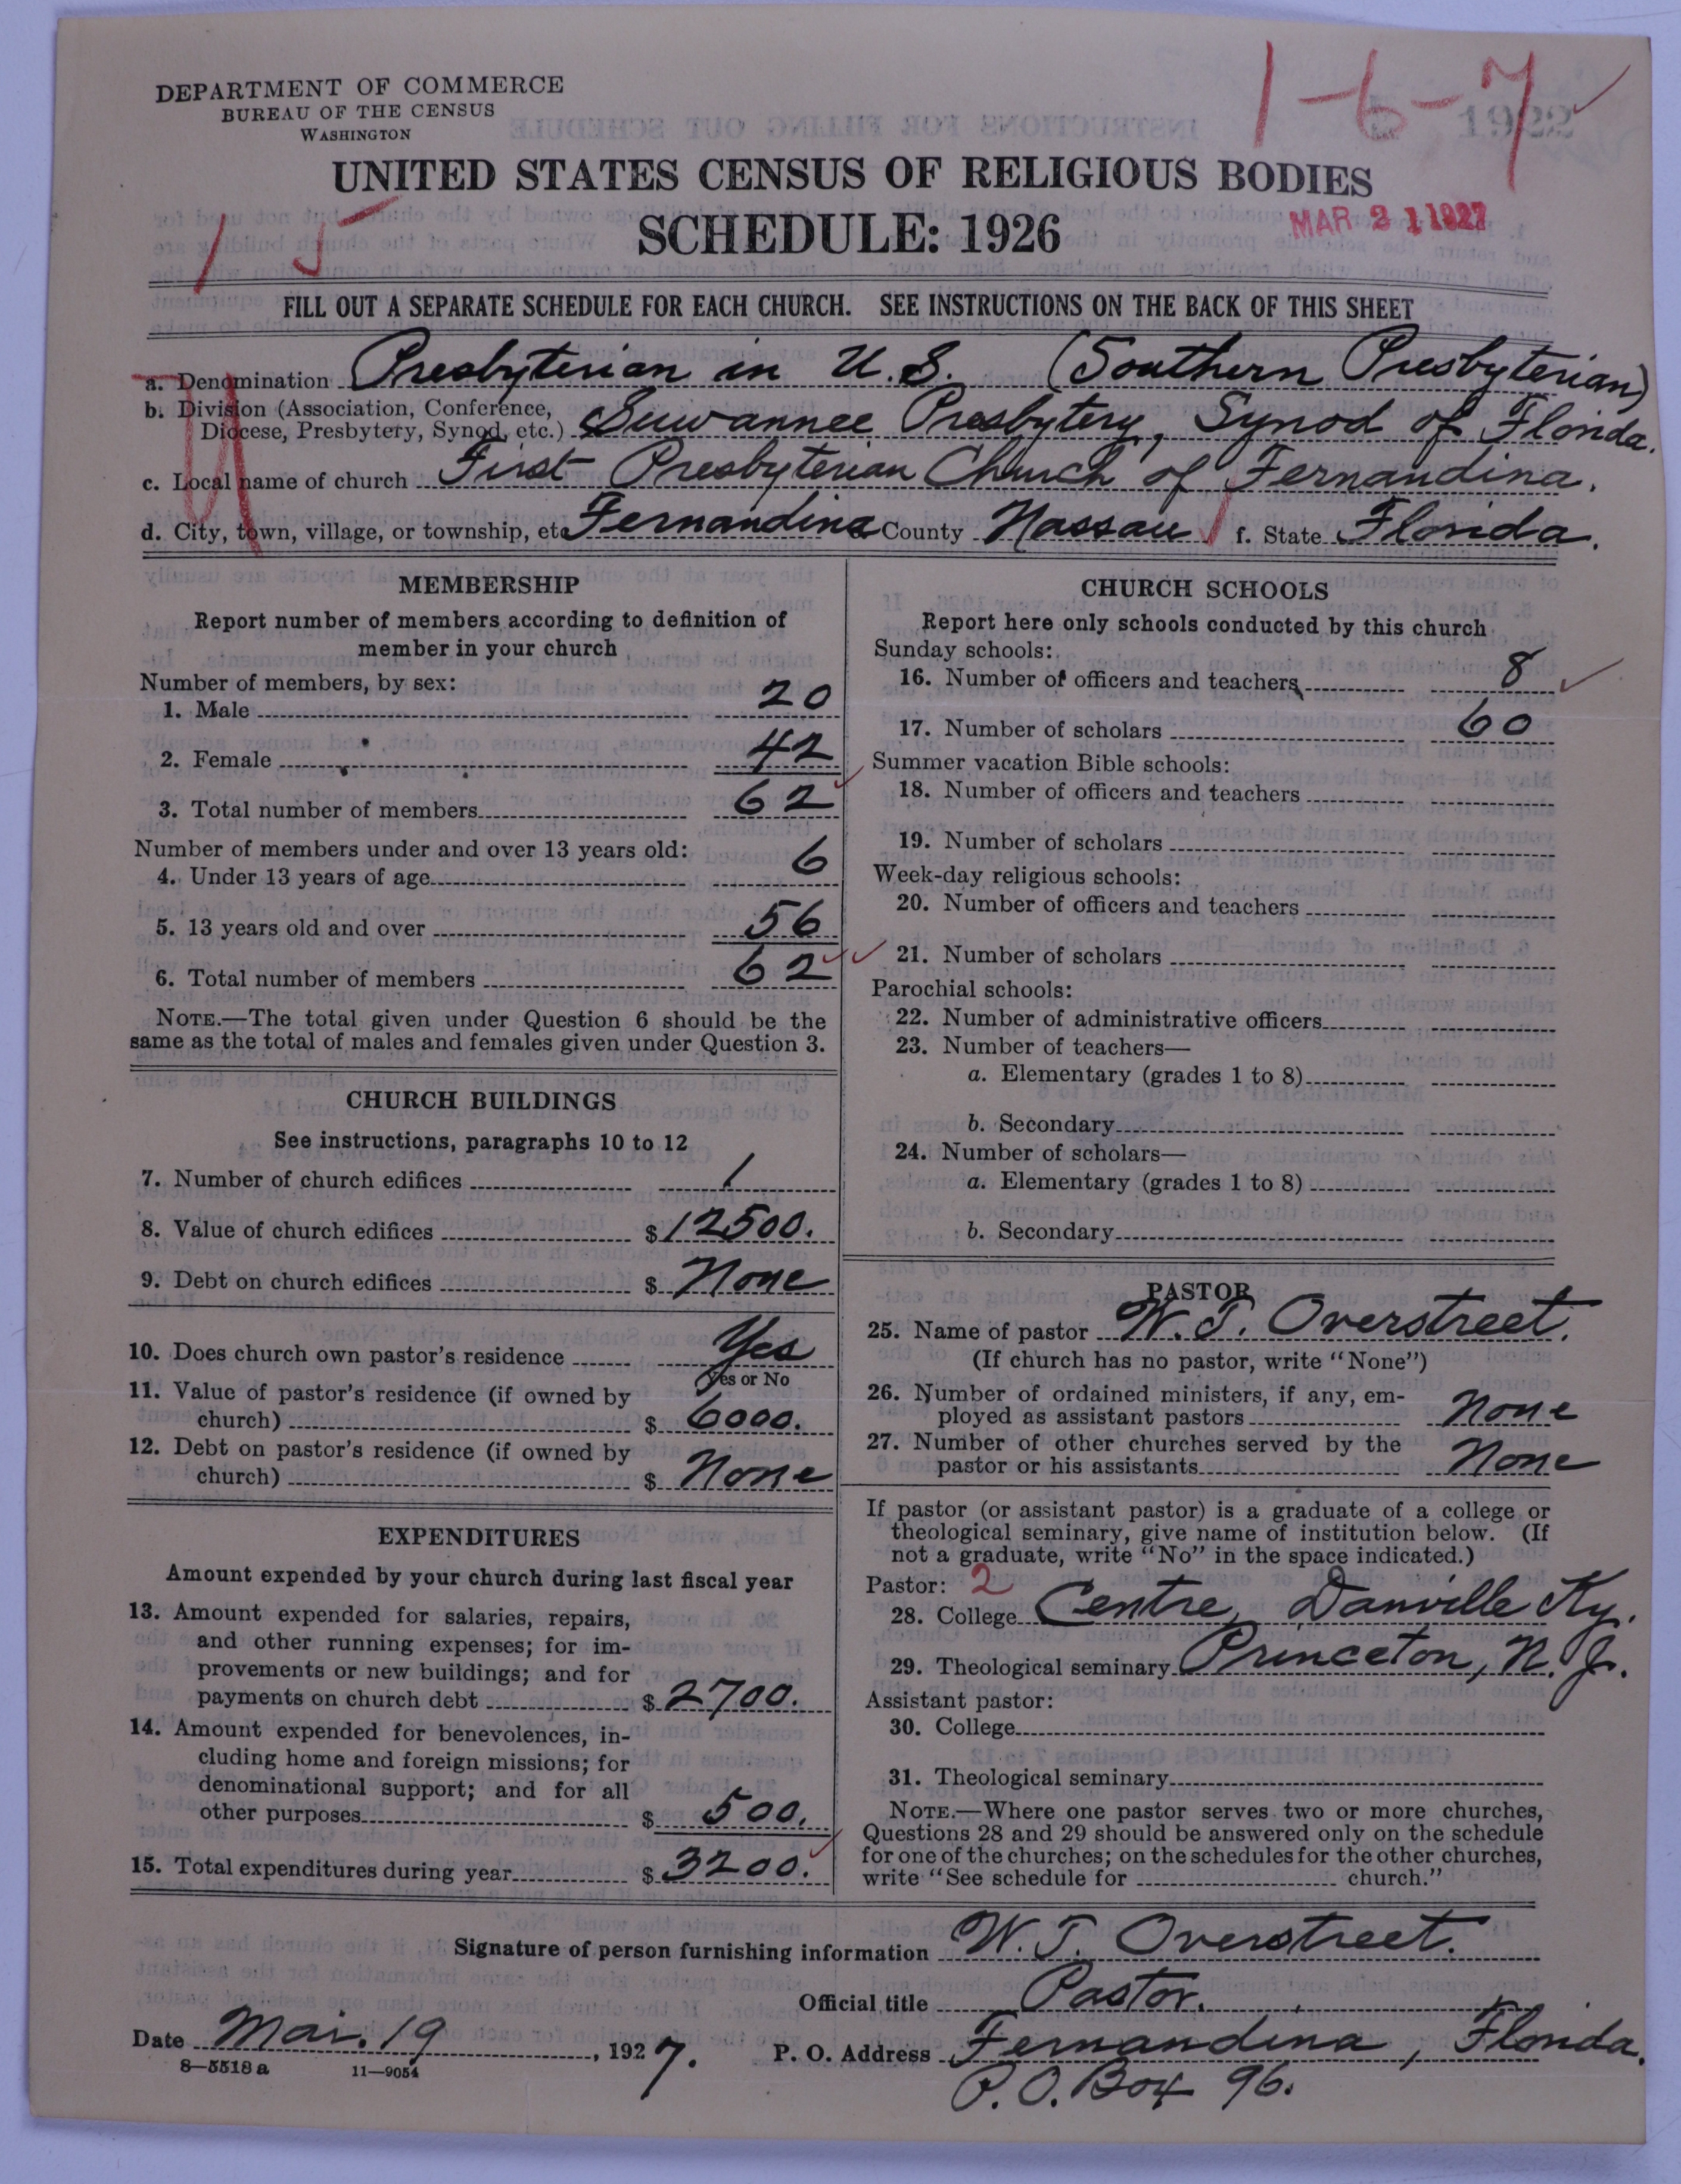 DEPARTMENT OF COMMERCE
BUREAU OF THE CENSUS
WASHINGTON
1-6-7
1922
UNITED STATES CENSUS OF RELIGIOUS BODIES
SCHEDULE: 1926
MAR 21 1927
15
FILL OUT A SEPARATE SCHEDULE FOR EACH CHURCH. SEE INSTRUCTIONS ON THE BACK OF THIS SHEET
a. Denomination Presbyterian in U.S. (Southern Presbyterian)
b. Division (Association, Conference,
Diocese, Presbytery, Synod, etc.) Suwannee Presbytery, Synod of Florida.
c. Local name of church First Presbyterian Church of Fernandina.
d. City, town, village, or township, etc Fernandina County Nassau f. State Florida.
MEMBERSHIP
Report number of members according to definition of
member in your church
Number of members, by sex:
1. Male 20
2. Female 42
3. Total number of members 62
Number of members under and over 13 years old:
4. Under 13 years of age 6
5. 13 years old and over 56
6. Total number of members 62
NOTE.—The total given under Question 6 should be the
same as the total of males and females given under Question 3.
CHURCH BUILDINGS
See instructions, paragraphs 10 to 12
7. Number of church edifices 1
8. Value of church edifices $12500.
9. Debt on church edifices $ None
10. Does church own pastor's residence Yes
Yes or No
11. Value of pastor's residence (if owned by
church) $ 6000.
12. Debt on pastor's residence (if owned by
church) $ None
EXPENDITURES
Amount expended by your church during last fiscal year
13. Amount expended for salaries, repairs,
and other running expenses; for im-
provements or new buildings; and for
payments on church debt $ 2700.
14. Amount expended for benevolences, in-
cluding home and foreign missions; for
denominational support; and for all
other purposes $ 500.
15. Total expenditures during year $ 3200.
CHURCH SCHOOLS
Report here only schools conducted by this church
Sunday schools:
16. Number of officers and teachers 8
17. Number of scholars 60
Summer vacation Bible schools:
18. Number of officers and teachers
19. Number of scholars
Week-day religious schools:
20. Number of officers and teachers
21. Number of scholars
Parochial schools:
22. Number of administrative officers
23. Number of teachers—
a. Elementary (grades 1 to 8)
b. Secondary
24. Number of scholars—
a. Elementary (grades 1 to 8)
b. Secondary
PASTOR
25. Name of pastor W. T. Overstreet.
(If church has no pastor, write "None")
26. Number of ordained ministers, if any, em-
ployed as assistant pastors None
27. Number of other churches served by the
pastor or his assistants None
If pastor (or assistant pastor) is a graduate of a college or
theological seminary, give name of institution below. (If
not a graduate, write "No" in the space indicated.)
Pastor: 2
28. College Centre, Danville Ky.
29. Theological seminary Princeton, N. J.
Assistant pastor:
30. College
31. Theological seminary
NOTE.—Where one pastor serves two or more churches,
Questions 28 and 29 should be answered only on the schedule
for one of the churches; on the schedules for the other churches,
write "See schedule for church."
Signature of person furnishing information W. T. Overstreet.
Official title Pastor.
Date Mar. 19, 1927. P. O. Address Fernandina, Florida.
8—5518 a 11—9054
P.O. Box 96.